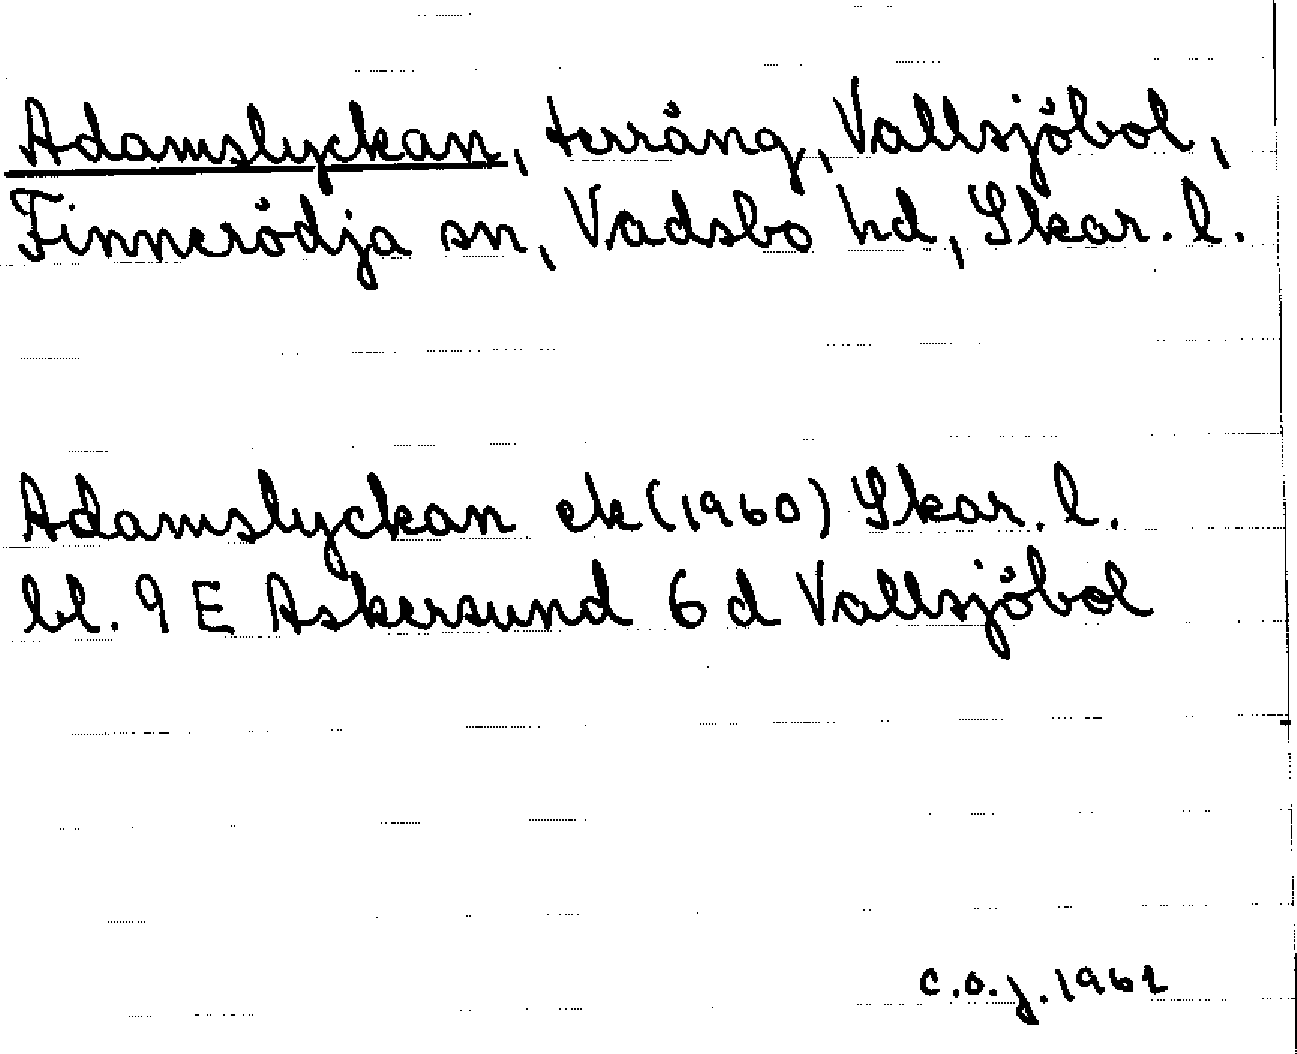 Adamslyckan, terräng, Vallsjöbol,
Finnerödja sn, Vadsbo hd, Skar. l.
Adamslyckan ek (1960) Skar. l.
bl. 9 E Askersund 6 d Vallsjöbol
C.O.J. 1962